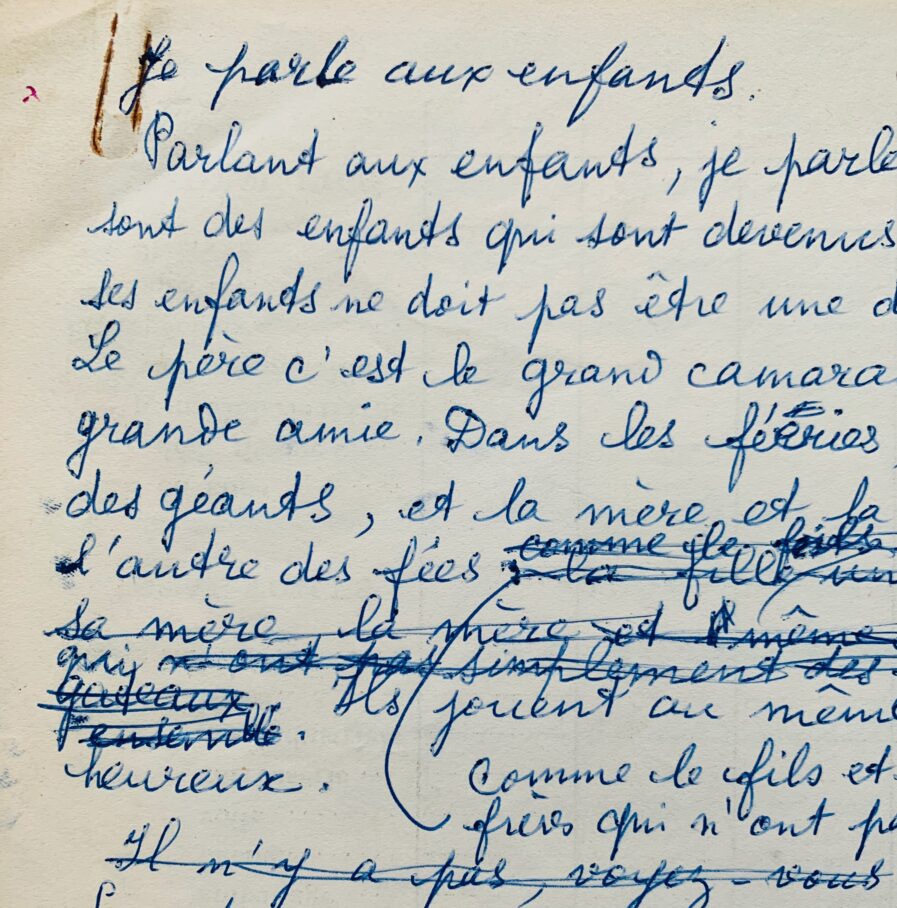 Je parle aux enfants.
Parlant aux enfants, je parle
sont des enfants qui sont devenus
ses enfants ne doit pas être une d
Le père c'est le grand camara
grande amie. Dans les féeries
des géants, et la mère et la
comme le fils
l'autre des fées la fille un
sa mère, la mère et même
qui n'ont pas simplement des
gateaux. Ils jouent au même
ensemble.
heureux. comme le fils et
frères qui n'ont pa
Il n'y a pas, voyez-vous